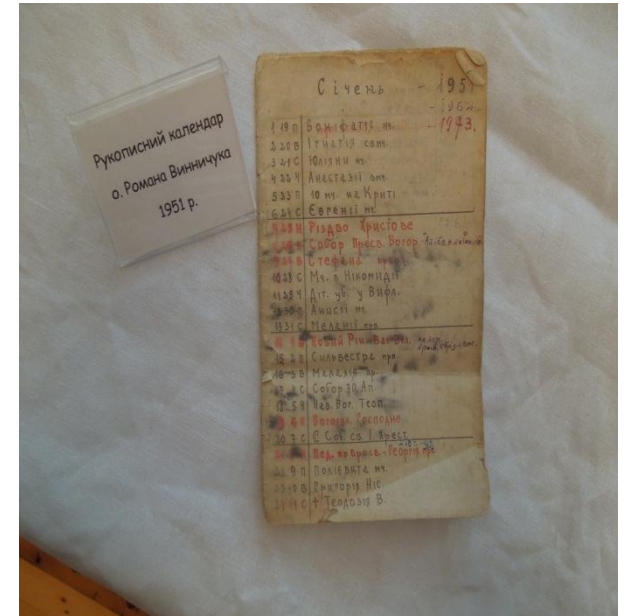 Рукописний календар
о. Романа Винничука
1951 р.
Січень - 1951
- 1962.
- 1973.
1 19 П Боніфатія мч.
2 20 В Ігнатія свмч.
3 21 С Юліяни мч.
4 22 Ч Анастазії вмч.
5 23 П 10 мч. на Криті
6 24 С Евгенії мч.
7 25 Н Різдво Христове
8 26 П Собор Пресв. Богор.
9 27 В Стефана
10 28 С Мч. в Нікомидії
11 29 Ч Діт. уб. у Вифл.
12 30 П Анисії мч.
13 31 С Меланії прп.
14 1 Н Новий Рік
15 2 П Сильвестра прп.
16 3 В Малахія пр.
17 4 С Собор 70 Ап.
18 5 Ч Нав. Бог. Теоп.
19 6 П Богоявл. Господнє
20 7 С Соб. св. І. Хрест.
21 8 Н Нед. по Просв. - Георгія
22 9 П Полієвкта мч.
23 10 В Григорія Ніс.
24 11 С † Теодозія В.